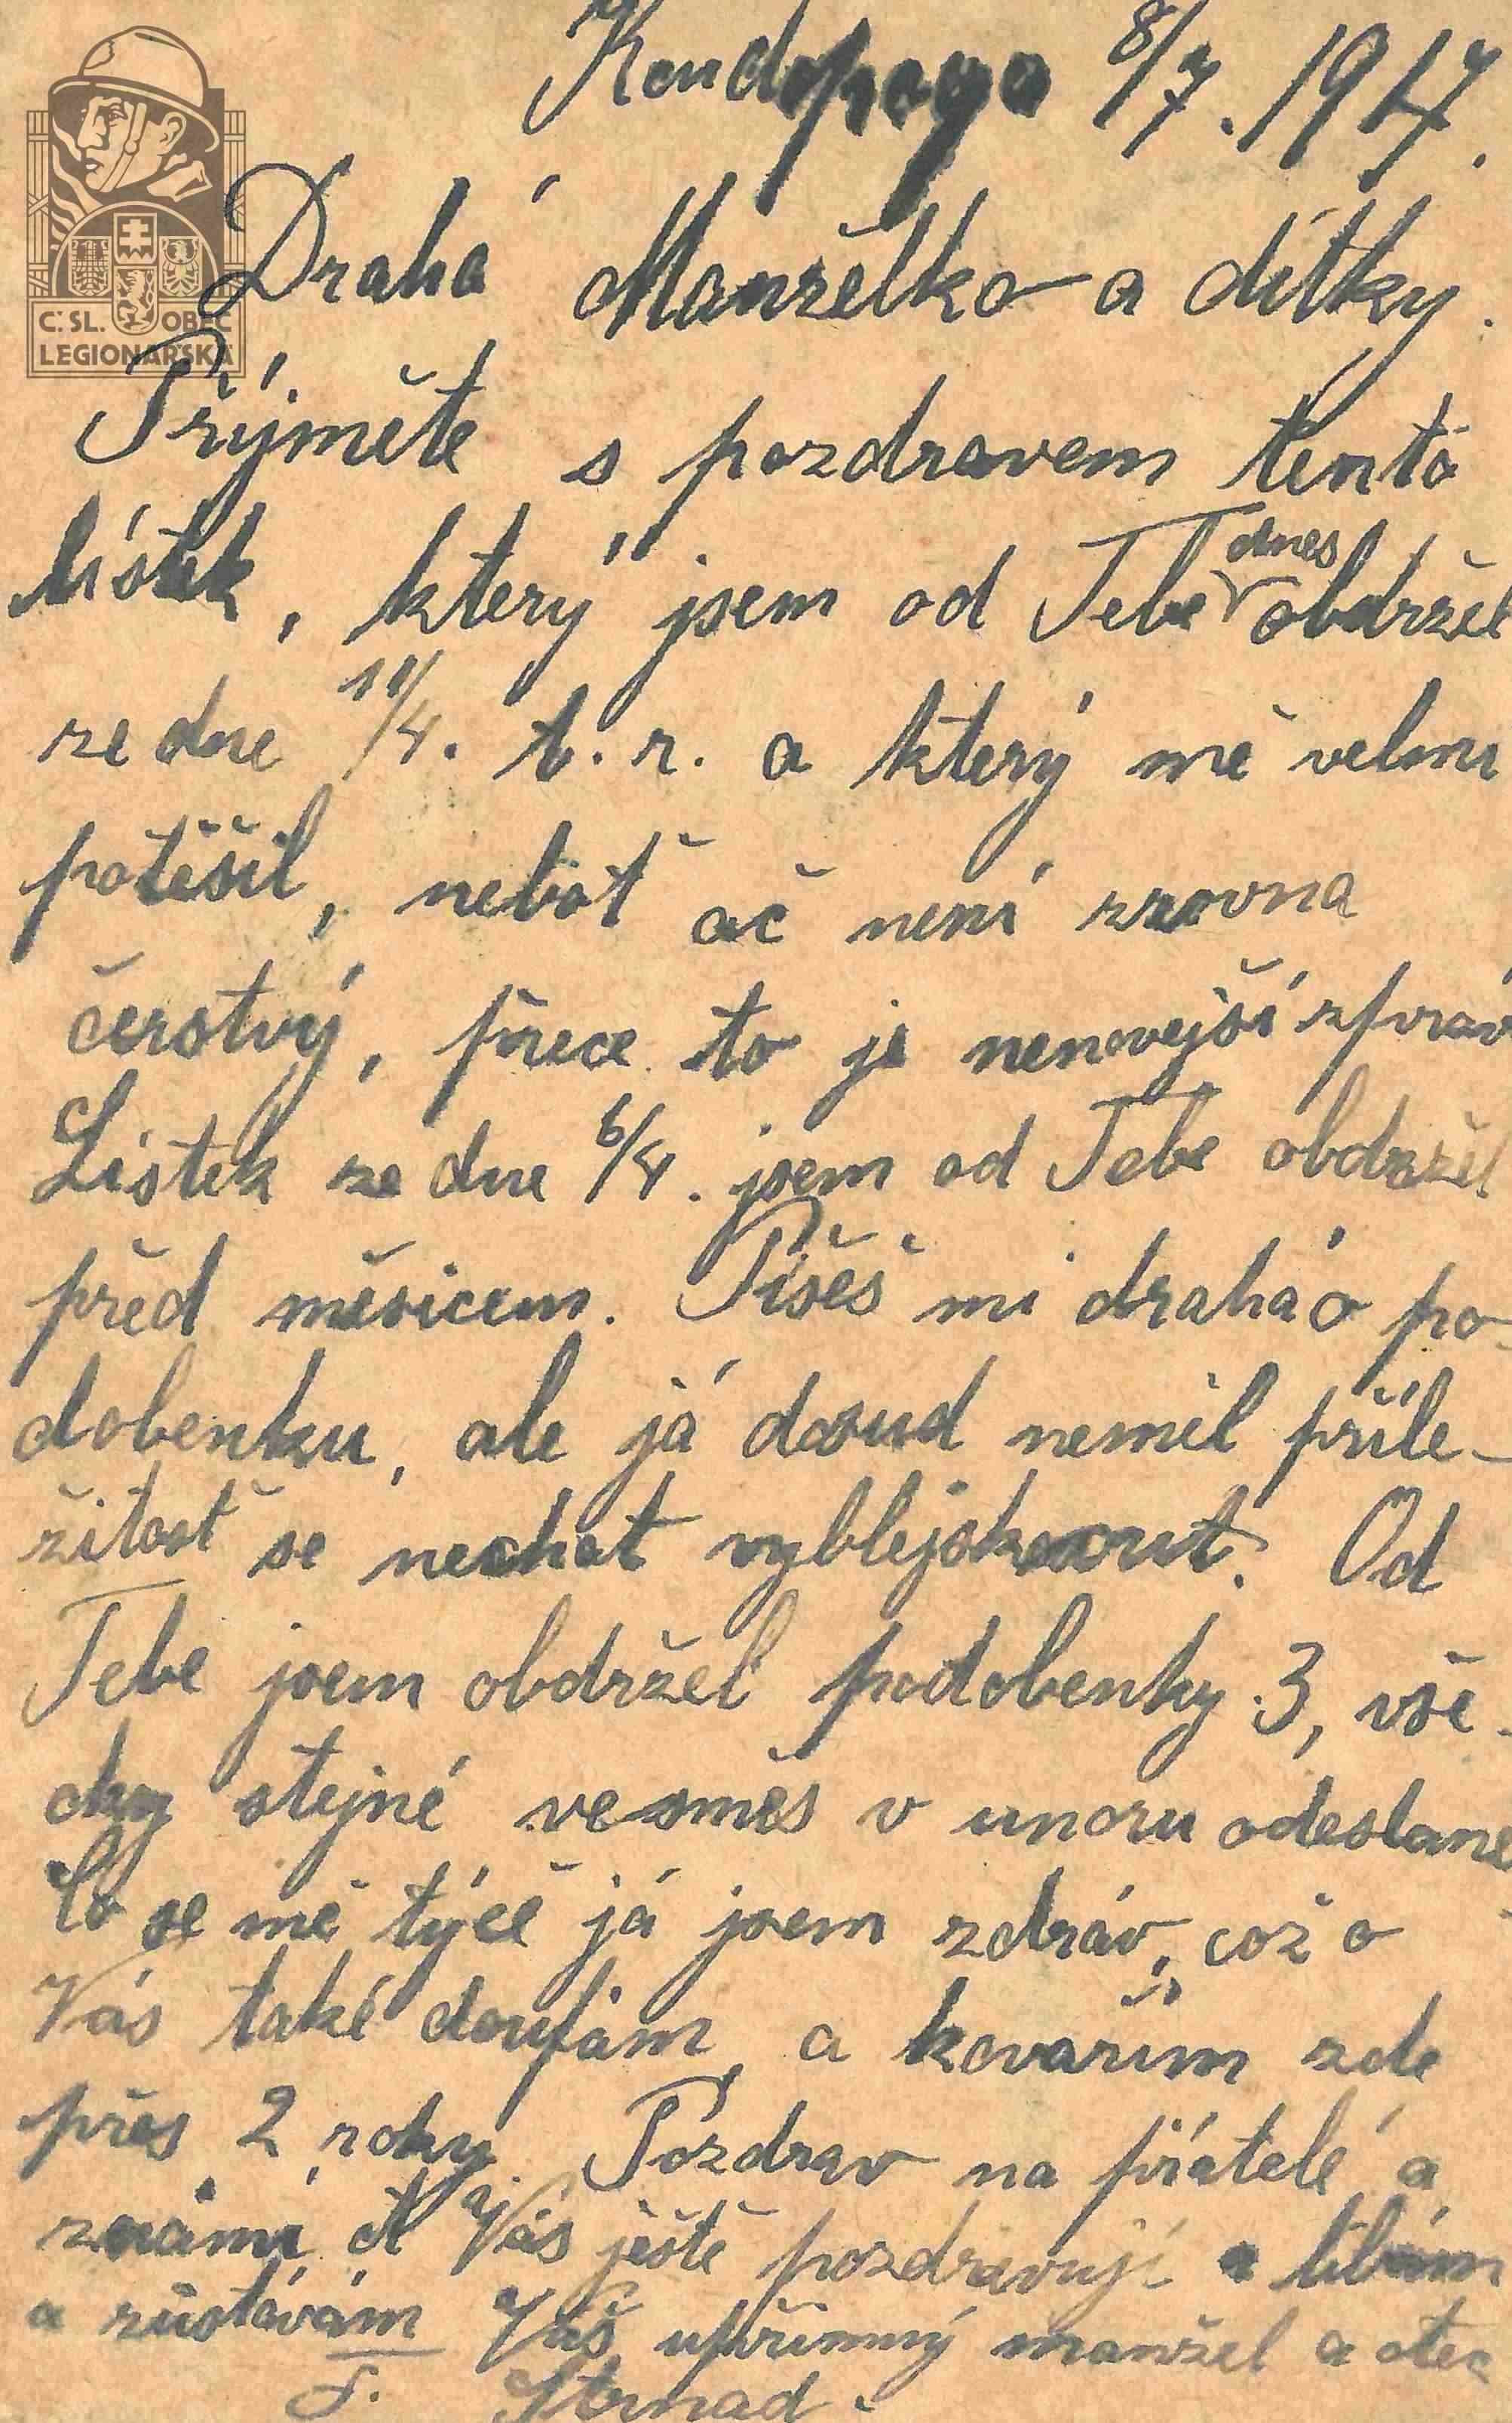 Kondopoga 8/7. 1917.
C.SL. OBEC
LEGIONÁŘSKÁ
Drahá Manželko a dítky.
Příjměte s pozdravem tento
lístek, který jsem od Tebe dnes obdržel
ze dne 11/4. t. r. a který mě velmi
potěšil, neboť ač není zrovna
čerstvý, přece to je nenovejší zpráv
Lístek ze dne 6/4. jsem od Tebe obdržel
před měsicem. Píšeš mi drahá o po-
dobenku, ale já dosud neměl příle-
žitosť se nechat vyblejsknout. Od
Tebe jsem obdržel podobenky 3, vše-
cky stejné vesměs v unoru odeslané
Co se mě týče já jsem zdráv, což o
Vás také doufám, a kovařím zde
přes 2 roky. Pozdrav na přátelé a
známí. A Vás ještě pozdravuji a líbám
a zůstávám Váš upřímný manžel a otec
F. Strnad.